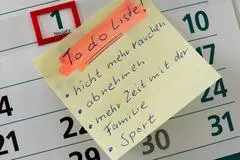 1
To do Liste!
• nicht mehr rauchen
• abnehmen
• mehr Zeit mit der
Familie
• Sport
3
9
10
17
24
23
30
31